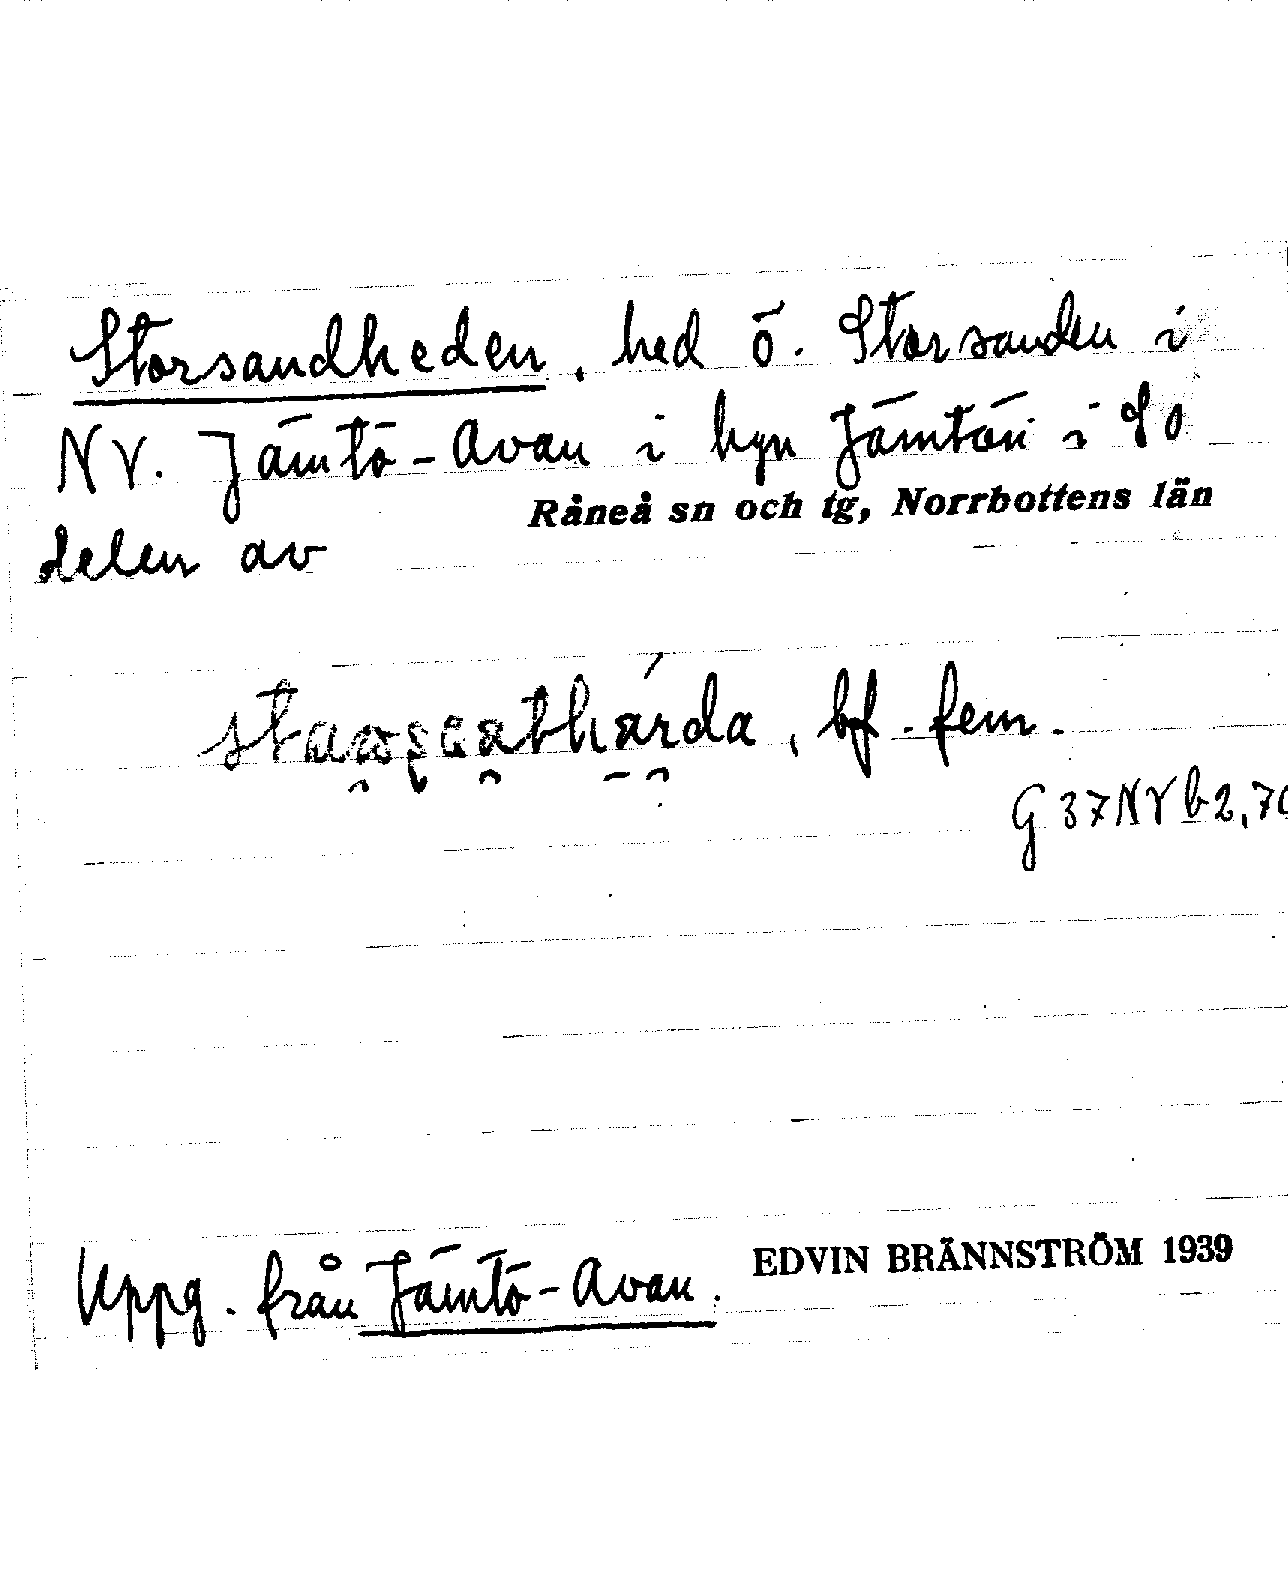 Storsandheden, hed ö. Storsanden i
NV. Jämtö-Avan i byn Jämtön i SO
Råneå sn och tg, Norrbottens län
delen av
bf. fem.
G 37 NV b 2, 70
Uppg. från Jämtö-Avan.
EDVIN BRÄNNSTRÖM 1939